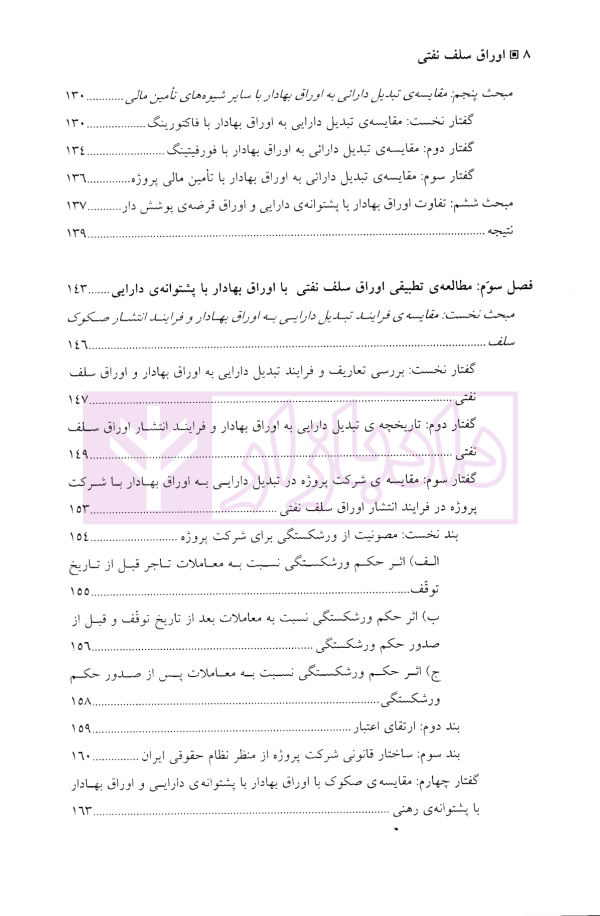 ۸ ▣ اوراق سلف نفتی
مبحث پنجم: مقایسه‌ی تبدیل دارائی به اوراق بهادار با سایر شیوه‌های تأمین مالی............۱۳۰
گفتار نخست: مقایسه‌ی تبدیل دارایی به اوراق بهادار با فاکتورینگ...................۱۳۰
گفتار دوم: مقایسه‌ی تبدیل دارائی به اوراق بهادار با فورفیتینگ.........................۱۳٤
گفتار سوم: مقایسه‌ی تبدیل دارائی به اوراق بهادار با تأمین مالی پروژه..............۱۳٦
مبحث ششم: تفاوت اوراق بهادار با پشتوانه‌ی دارایی و اوراق قرضه‌ی پوشش دار...........۱۳۷
نتیجه...............................................................................................................................۱۳۹
فصل سوّم: مطالعه‌ی تطبیقی اوراق سلف نفتی با اوراق بهادار با پشتوانه‌ی دارایی.......۱٤۳
مبحث نخست: مقایسه‌ی فرایند تبدیل دارایی به اوراق بهادار و فرایند انتشار صکوک
سلف...............................................................................................................................۱٤٦
گفتار نخست: بررسی تعاریف و فرایند تبدیل دارایی به اوراق بهادار و اوراق سلف
نفتی....................................................................................................................۱٤۷
گفتار دوم: تاریخچه ی تبدیل دارایی به اوراق بهادار و فرایند انتشار اوراق سلف
نفتی....................................................................................................................۱٤۹
گفتار سوم: مقایسه ی شرکت پروژه در تبدیل دارایی به اوراق بهادار با شرکت
پروژه در فرایند انتشار اوراق سلف نفتی............................................................۱٥۳
بند نخست: مصونیت از ورشکستگی برای شرکت پروژه............................۱٥٤
الف) اثر حکم ورشکستگی نسبت به معاملات تاجر قبل از تاریخ
توقّف......................................................................................................۱٥٥
ب) اثر حکم ورشکستگی نسبت به معاملات بعد از تاریخ توقّف و قبل از
صدور حکم ورشکستگی.......................................................................۱٥٦
ج) اثر حکم ورشکستگی نسبت به معاملات پس از صدور حکم
ورشکستگی............................................................................................۱٥۸
بند دوم: ارتقای اعتبار...................................................................................۱٥۹
بند سوم: ساختار قانونی شرکت پروژه از منظر نظام حقوقی ایران...............۱٦۰
گفتار چهارم: مقایسه‌ی صکوک با اوراق بهادار با پشتوانه‌ی دارایی و اوراق بهادار
با پشتوانه‌ی رهنی...............................................................................................۱٦۳
دادبازار